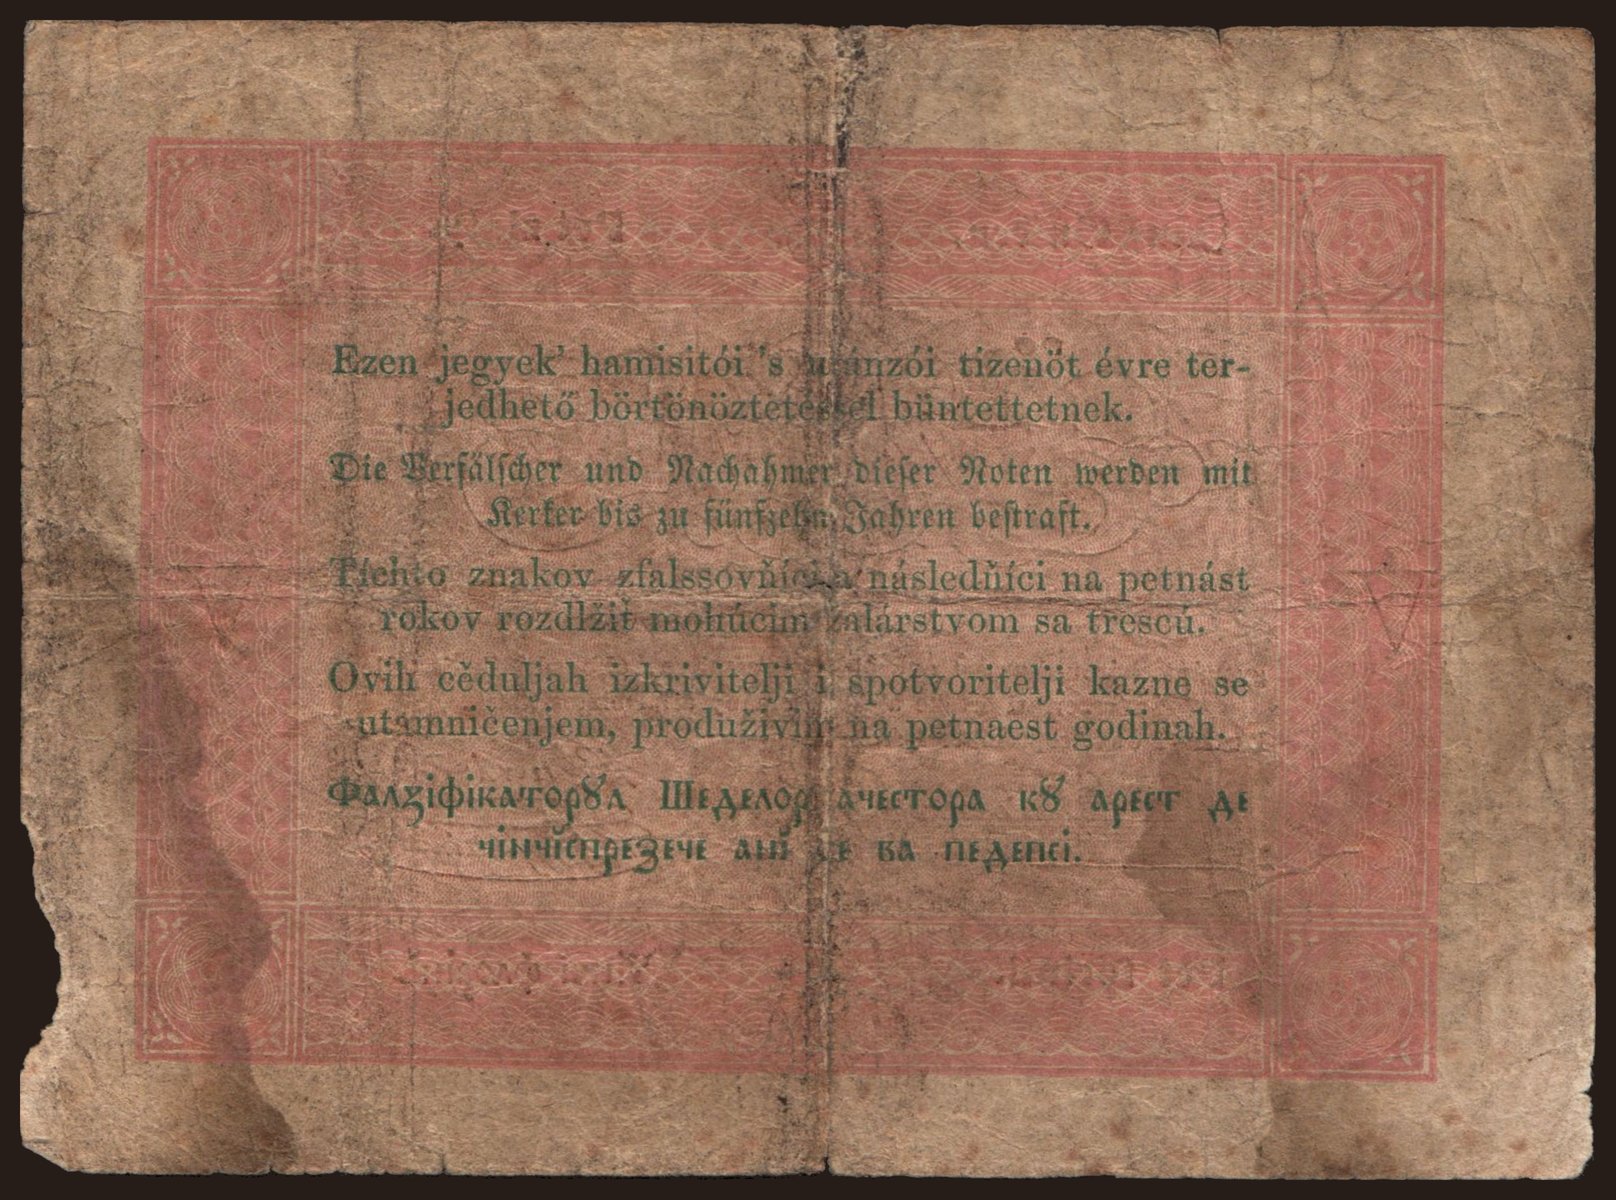 Ezen jegyek' hamisitói 's utánzói tizenöt évre ter-
jedhető börtönöztetéssel büntettetnek.
Die Verfälscher und Nachahmer dieser Noten werden mit
Kerker bis zu fünfzehn Jahren bestraft.
Tíchto znakov zfalssovňíci a následňíci na petnást
rokov rozdlžiť mohúcim žalárstvom sa trescú.
Ovih cěduljah izkrivitelji i spotvoritelji kazne se
utamničenjem, produživim na petnaest godinah.
Фалзіфікаторꙋл Шеделор ачестора кꙋ арест де
чінчіспрезече ані се ва педепсі.